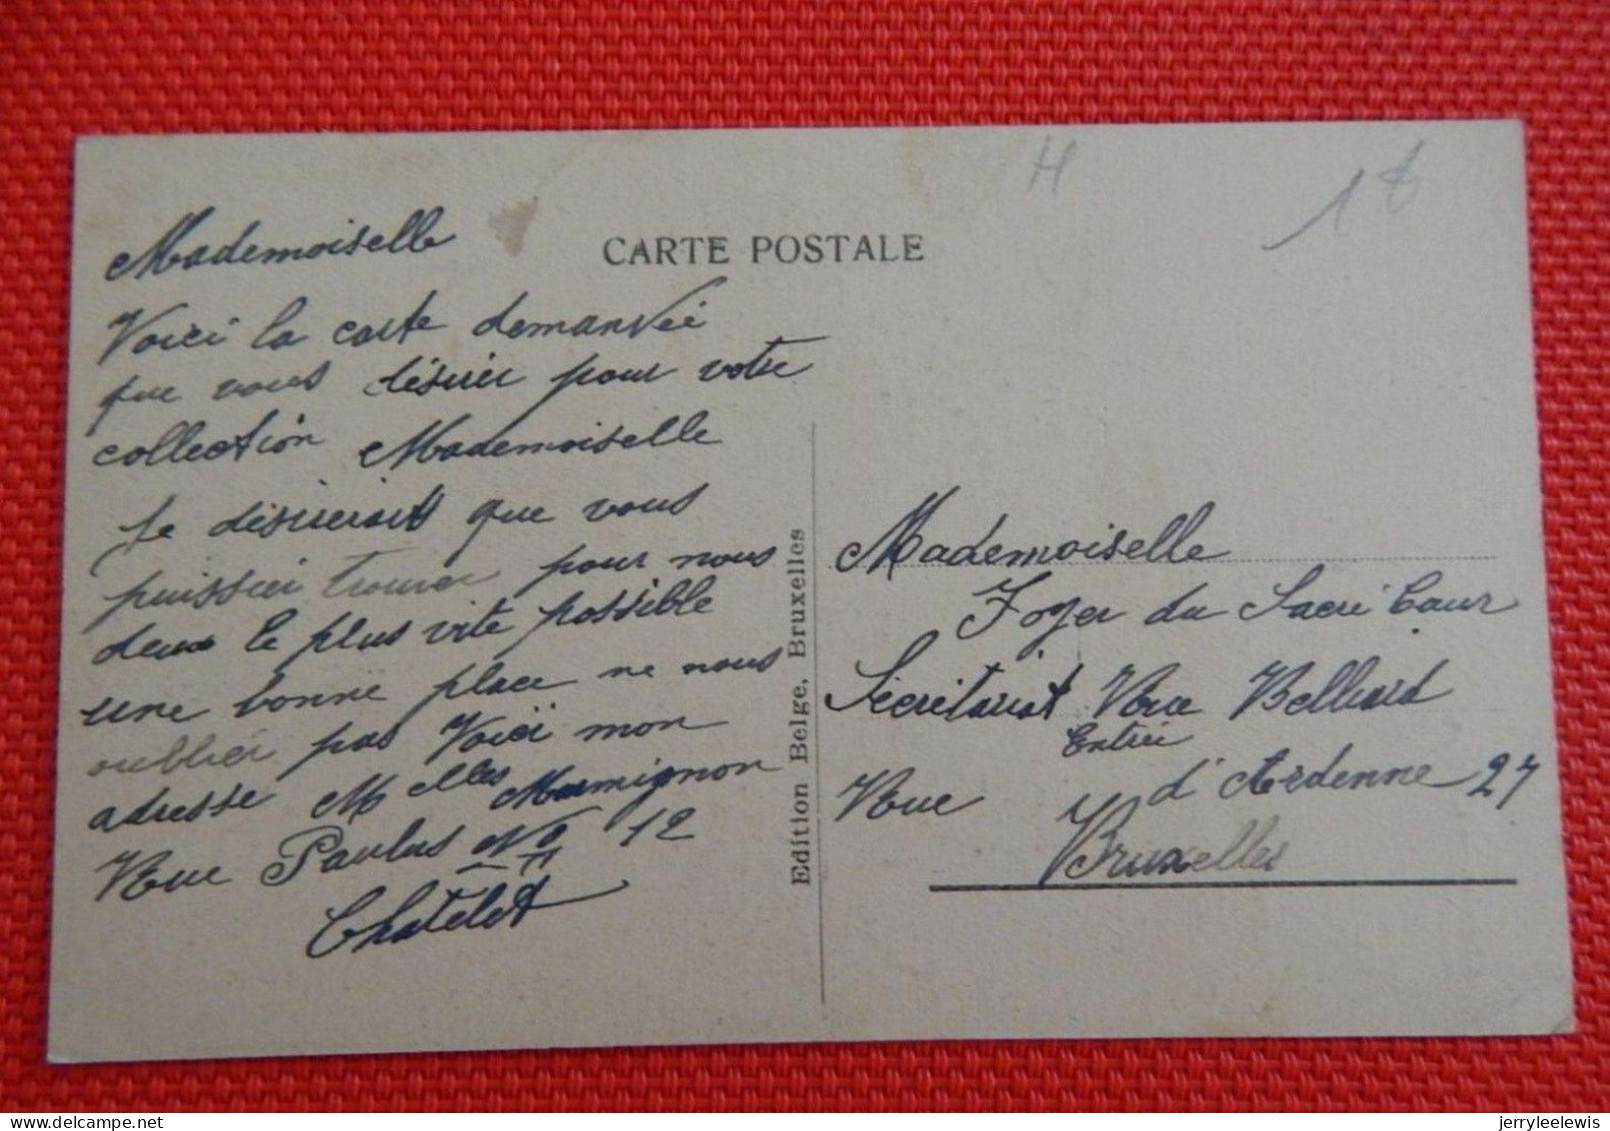 H
18
CARTE POSTALE
Mademoiselle
Voici la carte demandée
que vous désirer pour votre
collection Mademoiselle
Je désirerait que vous
puissier trouver pour nous
deux le plus vite possible
une bonne place ne nous
oublier pas Voiçi mon
adresse Melles Marmignon
Rue Paulus No 12
Chatelet
Edition Belge, Bruxelles
Mademoiselle
Foyer du Sacré Cœur
Sécrétariat Rue Belliard
Entrée
Rue d'Ardenne 27
Bruxelles
jerryleelewis